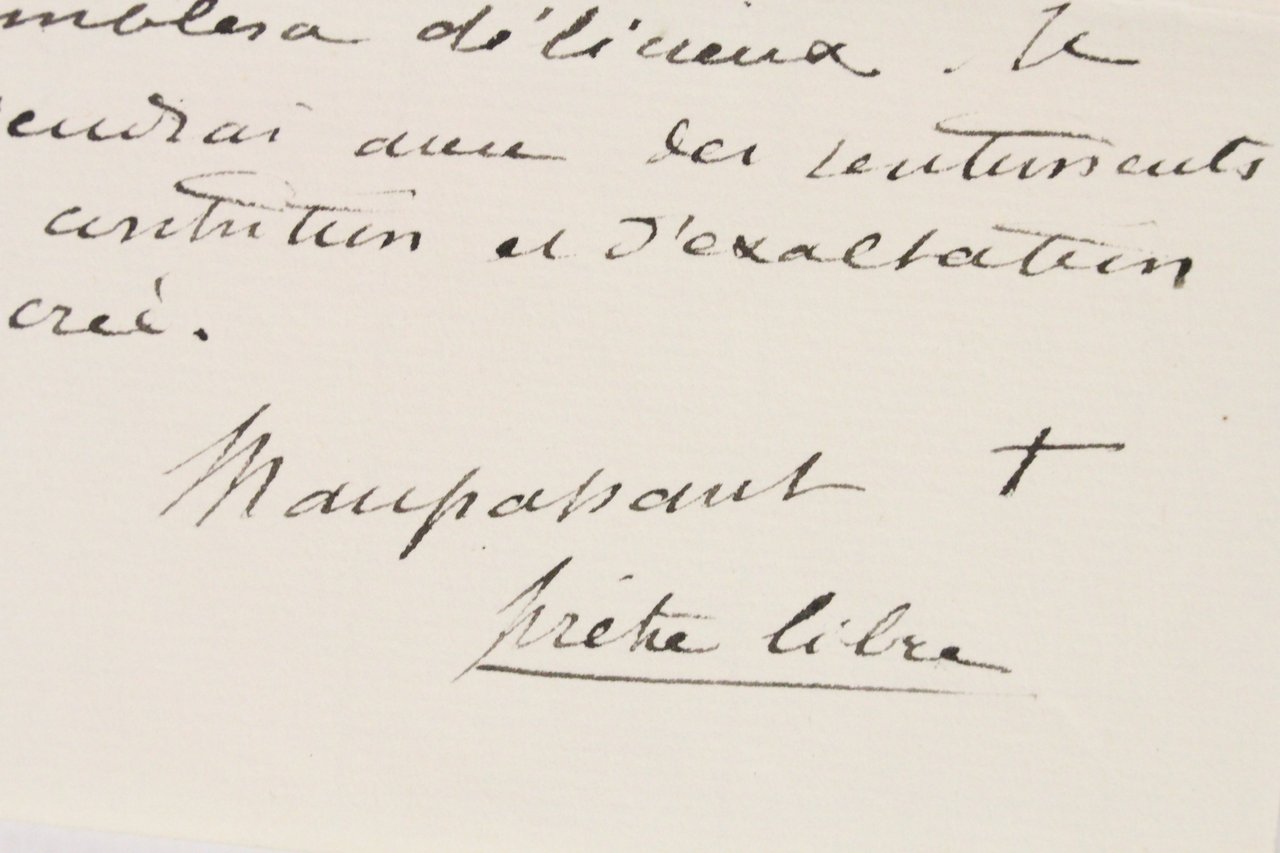 mblera délicieux. Je
endrai avec des sentiments
contrition et d'exaltation
crée.
Maupassant †
prêtre libre